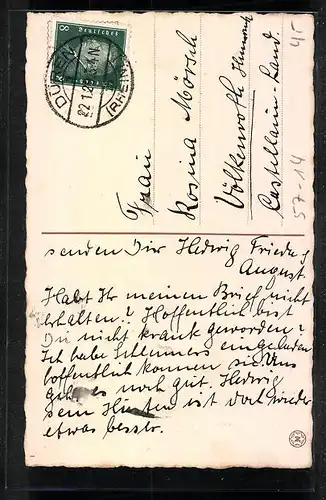 DÜLKEN
(RHEINL)
8 Deutsches 8
Frau
Rosina Mörsch
Völkenroth Hunsrück
Castellaun-Land
45
57-14
senden Dir Hedwig Frieda u
August
Habt Ihr meinen Brief nicht
erhalten? Hoffentlich bist
Du nicht krank geworden?
Ich habe eingeladen
hoffentlich können sie. Uns
geht es noch gut. Hedwig
sein Husten ist doch wieder
etwas besser.